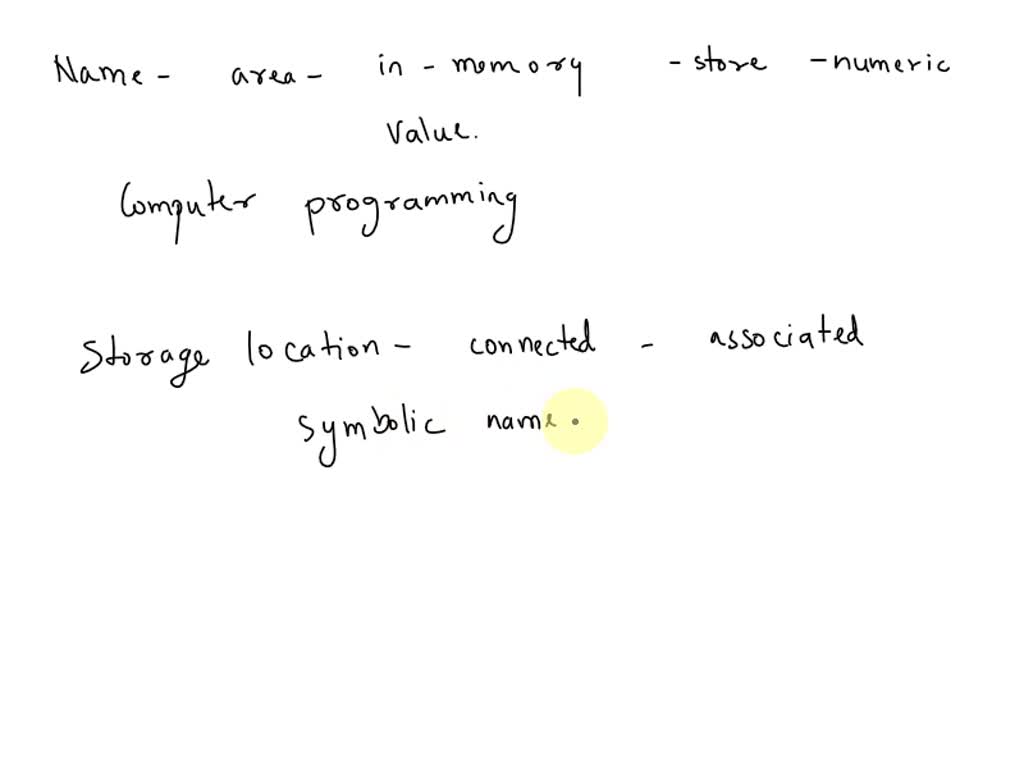 Name - area - in - memory - store - numeric
Value.
Computer programming
Storage location - connected - associated
symbolic name